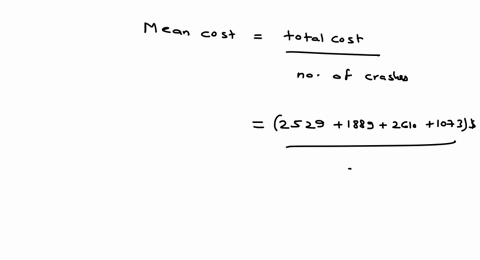 Mean cost = total cost
no. of crashes
= (2529 + 1889 + 2610 + 1073)$